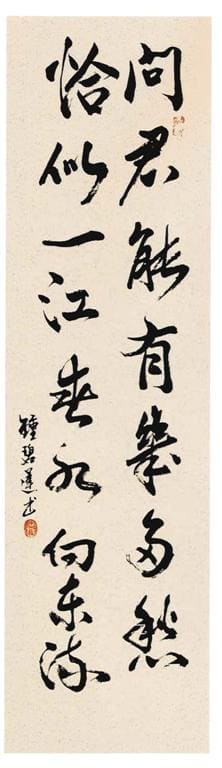 问君能有几多愁
恰似一江春水向东流